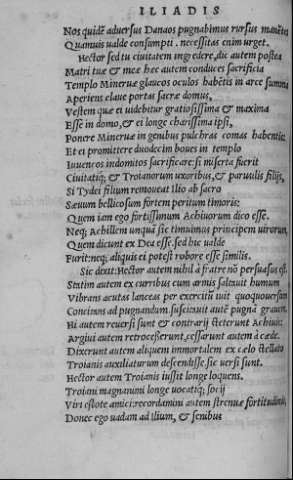 ILIADIS
Nos quidẽ adversus Danaos pugnabimus rursus manẽtes
Quamuis ualde consumpti. necessitas enim urget.
Hector sed tu ciuitatem ingredere, dic autem postea
Matri tuæ & meæ hæc autem conducẽs sacrificia
Templo Mineruæ glaucos oculos habẽtis in arce summa
Aperiens claue portas sacræ domus,
Vestem quæ ei uidebitur gratiosissima & maxima
Esse in domo, & ei longe charissima ipsi,
Ponere Mineruæ in genibus pulchras comas habentis:
Et ei promittere duodecim boues in templo
Iuuencos indomitos sacrificare: si miserta fuerit
Ciuitatisq; & Troianorum uxoribus, & paruulis filijs,
Si Tydei filium remoueat Ilio ab sacro
Sæuum bellicosum fortem peritum timoris:
Quem iam ego fortissimum Achiuorum dico esse.
Neq; Achillem unquã sic timuimus principem uirorum,
Quem dicunt ex Dea esse. sed hic ualde
Furit: neq; aliquis ei potest robore esse similis.
Sic dixit: Hector autem nihil à fratre nõ persuasus est.
Statim autem ex curribus cum armis saliuit humum
Vibrans acutas lanceas per exercitũ iuit quoquouersum
Concitans ad pugnandum, suscitauit autẽ pugnã grauem.
Hi autem reuersi sunt & contrarij steterunt Achiuis:
Argiui autem retrocesserunt, cessarunt autem à cæde.
Dixerunt autem aliquem immortalem ex cælo stellato
Troianis auxiliaturum descendisse, sic uersi sunt.
Hector autem Troianis iussit longe loquens.
Troiani magnanimi longe uocatiq; socij
Viri estote amici: recordamini autem strenuæ fortitudinis,
Donec ego uadam ad ilium, & senibus